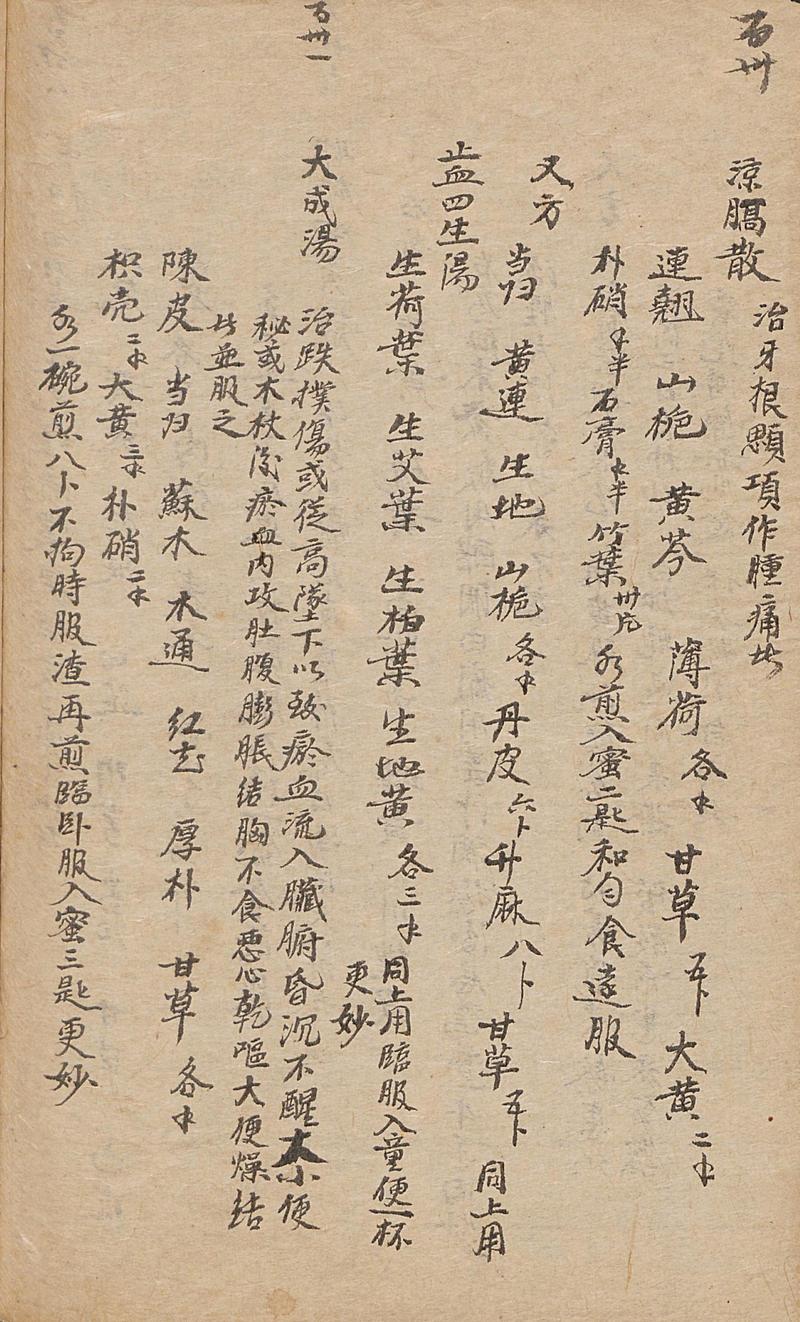 百卅
涼膈散 治牙根顋項作腫痛者
連翹 山梔 黃芩 薄荷各中 甘草五卜 大黃二中
朴硝中半石膏中半竹葉卅片 水煎入蜜二匙和勻食遠服
又方
当归 黃連 生地 山梔各中丹皮六卜升麻八卜 甘草五卜 同上用
止血四生湯
生荷葉 生艾葉 生柏葉 生地黃各三中 同上用臨服入童便一杯
更妙
百卅一
大成湯
治跌撲傷或從高墜下以致瘀血流入臟腑昏沉不醒大小便
秘或木杖後瘀血內攻肚腹膨脹結胸不食惡心乾嘔大便燥结
者並服之
陳皮 当归 蘇木 木通 红花 厚朴 甘草各中
枳壳二中大黃三中朴硝二中
水一碗煎八卜不拘時服渣再煎臨卧服入蜜三匙更妙